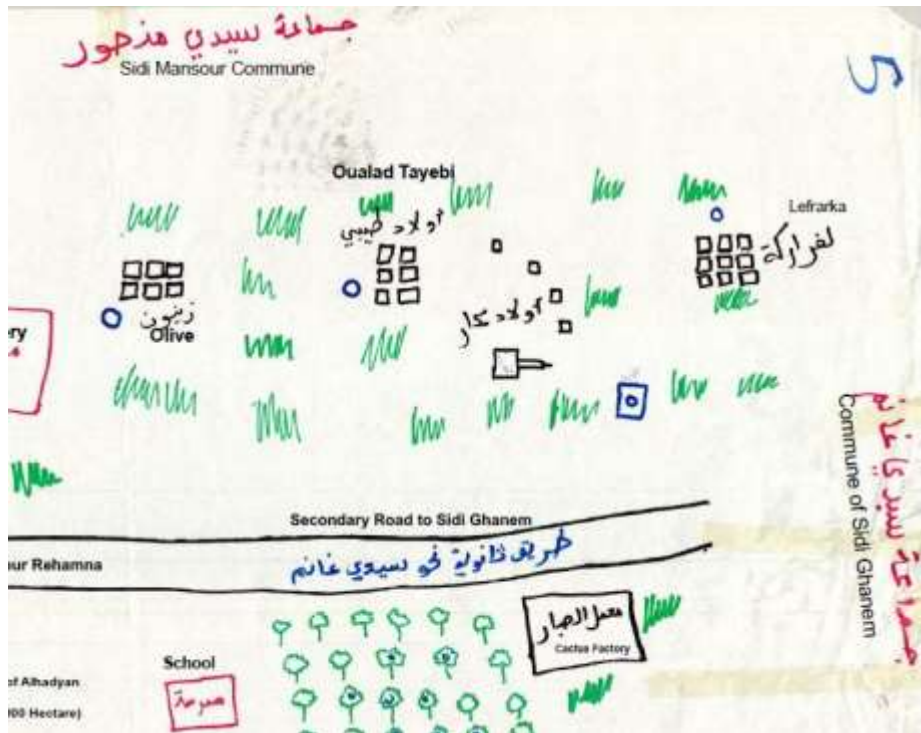 جماعة سيدي منصور
Sidi Mansour Commune
5
Oualad Tayebi
أولاد طيبي
Lefrarka
لفراركة
زيتون
Olive
ry
أولاد بكار
جماعة سيدي غانم
Commune of Sidi Ghanem
Secondary Road to Sidi Ghanem
طريق ثانوية نحو سيدي غانم
ur Rehamna
معمل الصبار
Cactus Factory
School
مدرسة
of Alhadyan
00 Hectare)